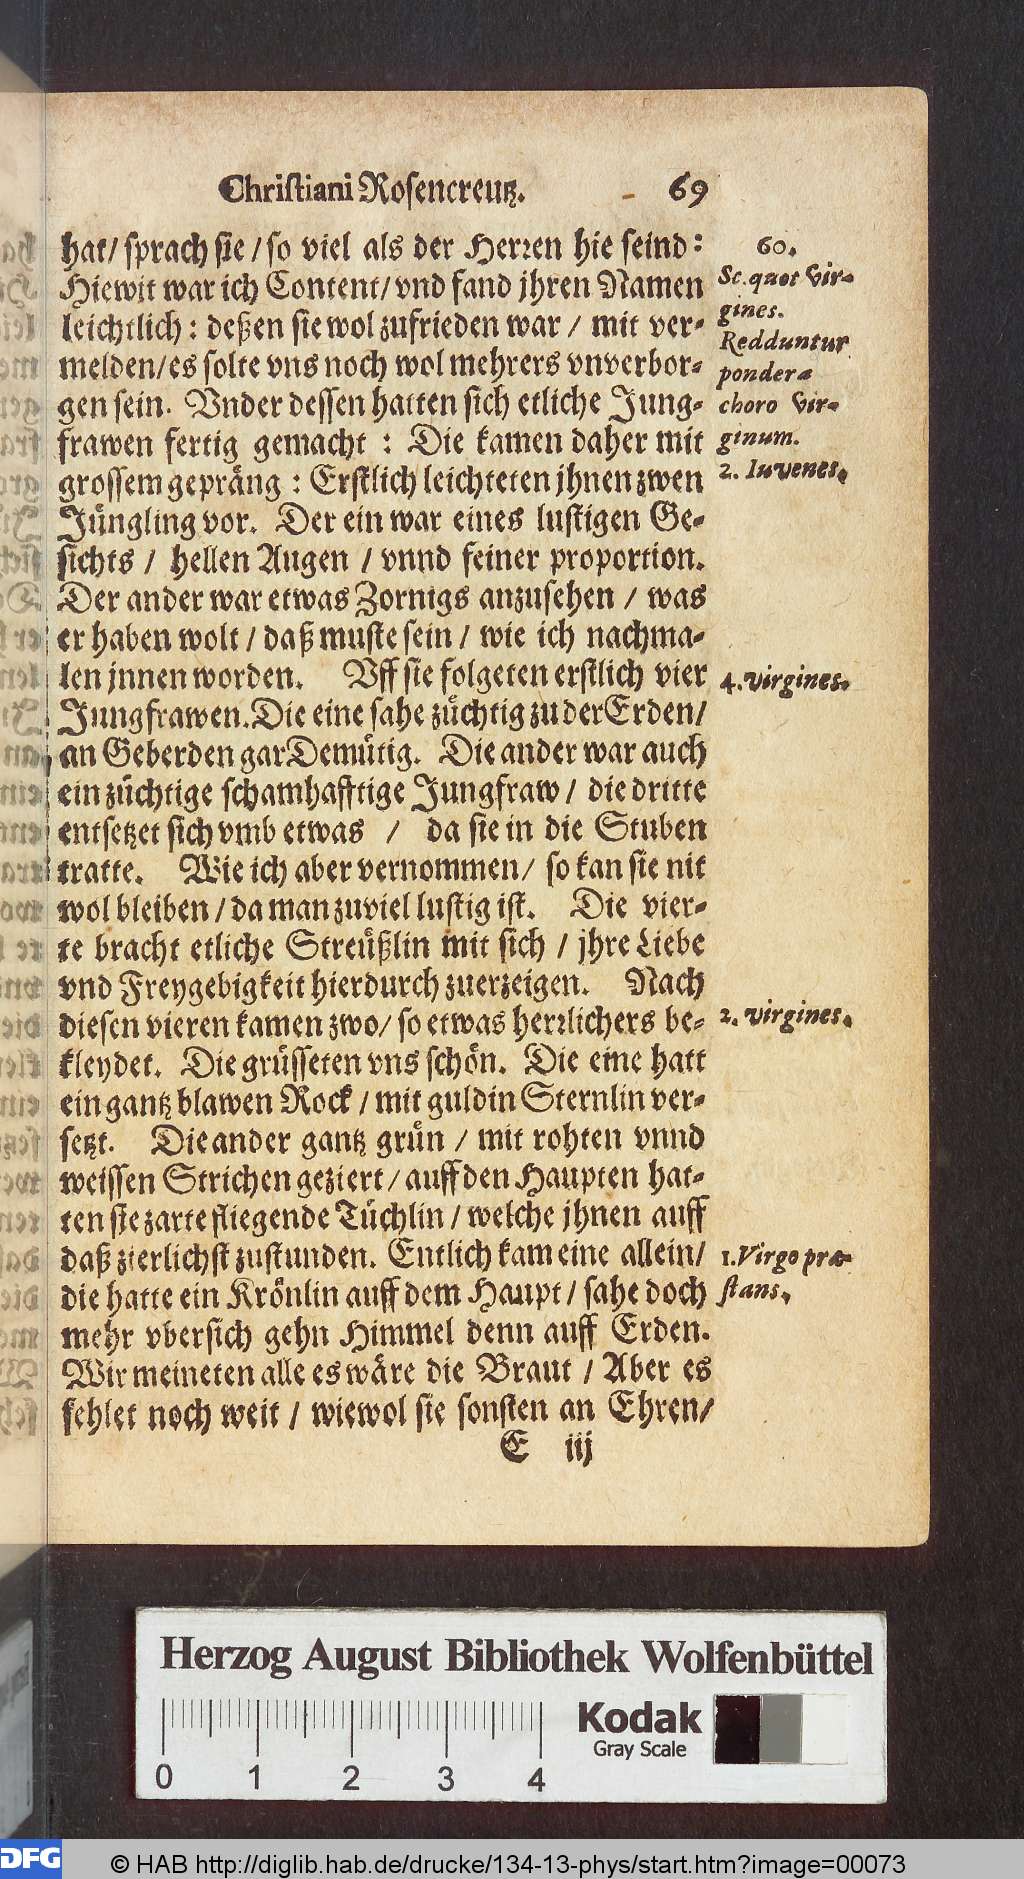 Christiani Rosencreutz. 69
hat/ sprach sie / so viel als der Herren hie seind:
Hiewit war ich Content/ vnd fand jhren Namen
leichtlich: deßen sie wol zufrieden war / mit ver-
melden/ es solte vns noch wol mehrers vnverbor-
gen sein. Vnder dessen hatten sich etliche Jung-
frawen fertig gemacht : Die kamen daher mit
grossem gepräng : Erstlich leichteten jhnen zwen
Jüngling vor. Der ein war eines lustigen Ge-
sichts / hellen Augen / vnnd feiner proportion.
Der ander war etwas Zornigs anzusehen / was
er haben wolt / daß muste sein / wie ich nachma-
len jnnen worden. Vff sie folgeten erstlich vier
Jungfrawen. Die eine sahe züchtig zu der Erden/
an Geberden gar Demütig. Die ander war auch
ein züchtige schamhafftige Jungfraw / die dritte
entsetzet sich vmb etwas / da sie in die Stuben
tratte. Wie ich aber vernommen/ so kan sie nit
wol bleiben / da man zuviel lustig ist. Die vier-
te bracht etliche Streüßlin mit sich / jhre Liebe
vnd Freygebigkeit hierdurch zuerzeigen. Nach
diesen vieren kamen zwo/ so etwas herrlichers be-
kleydet. Die grüsseten vns schön. Die eine hatt
ein gantz blawen Rock / mit guldin Sternlin ver-
setzt. Die ander gantz grün / mit rohten vnnd
weissen Strichen geziert / auff den Haupten hat-
ten sie zarte fliegende Tüchlin / welche jhnen auff
daß zierlichst zustunden. Entlich kam eine allein/
die hatte ein Krönlin auff dem Haupt / sahe doch
mehr vbersich gehn Himmel denn auff Erden.
Wir meineten alle es wäre die Braut / Aber es
fehlet noch weit / wiewol sie sonsten an Ehren/
E iij
60.
Sc. quot Vir-
gines.
Redduntur
pondera
choro Vir-
ginum.
2. Iuvenes.
4. virgines.
2. virgines.
1. Virgo præ-
stans.
Herzog August Bibliothek Wolfenbüttel
Kodak
Gray Scale
0 1 2 3 4
DFG
© HAB http://diglib.hab.de/drucke/134-13-phys/start.htm?image=00073